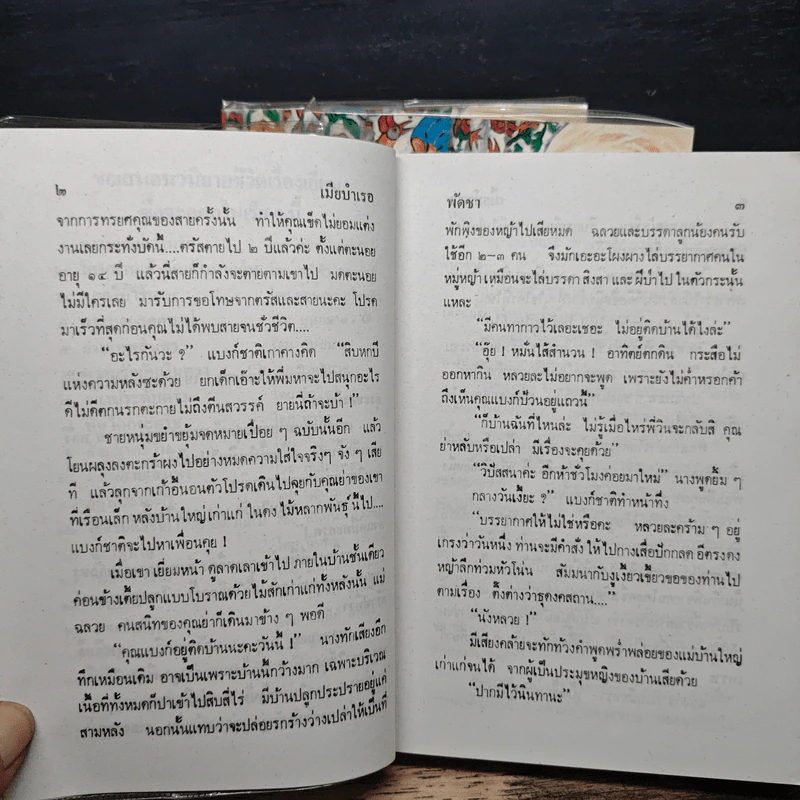 ๒
เมียบำเรอ
จากการทรยศคุณของสายครั้งนั้น ทำให้คุณเช็คไม่ยอมแต่ง
งานเลยกระทั่งบัดนี้....ตรัสตายไป ๒ ปีแล้วค่ะ ตั้งแต่ตะนอย
อายุ ๑๔ ปี แล้วนี่สายก็กำลังจะตายตามเขาไป มดตะนอย
ไม่มีใครเลย มารับการขอโทษจากตรัสและสายนะคะ โปรด
มาเร็วที่สุดก่อนคุณไม่ได้พบสายจนชั่วชีวิต....
“อะไรกันวะ ?” แบงก์ชาติเกาคางคิด “สิบหกปี
แห่งความหลังซะด้วย ยกเด็กเอ๊าะให้พี่มหาจะไปสนุกอะไร
ดีไม่ดีตกนรกตะกายไม่ถึงตีนสวรรค์ ยายนี่ถ้าจะบ้า !”
ชายหนุ่มขยำขยุ้มจดหมายเปื่อย ๆ ฉบับนั้นอีก แล้ว
โยนผลุงลงตะกร้าผงไปอย่างหมดความใส่ใจจริงๆ จัง ๆ เสีย
ที แล้วลุกจากเก้าอี้นอนตัวโปรดเดินไปลุยกับคุณย่าของเขา
ที่เรือนเล็ก หลังบ้านใหญ่เก่าแก่ ในดง ไม้หลากพันธุ์ นี้ไป....
แบงก์ชาติจะไปหาเพื่อนคุย !
เมื่อเขา เยี่ยมหน้า ดูลาดเลาเข้าไป ภายในบ้านชั้นเดียว
ค่อนข้างเตี้ยปลูกแบบโบราณด้วยไม้สักเก่าแก่ทั้งหลังนั้น แม่
ฉลวย คนสนิทของคุณย่าก็เดินมาข้าง ๆ พอดี
“คุณแบงก์อยู่ติดบ้านนะคะวันนี้ !” นางทักเสียงอึก
ทึกเหมือนเดิม อาจเป็นเพราะบ้านนี้กว้างมาก เฉพาะบริเวณ
เนื้อที่ทั้งหมดก็ปาเข้าไปสิบสี่ไร่ มีบ้านปลูกประปรายอยู่แค่
สามหลัง นอกนั้นแทบว่าจะปล่อยรกร้างว่างเปล่าให้เป็นที่
พัดชา
๓
พักพุงของหญ้าไปเสียหมด ฉลวยและบรรดาลูกน้องคนรับ
ใช้อีก ๒-๓ คน จึงมักเอะอะโผงผางไล่บรรยากาศคนใน
หมู่หญ้า เหมือนจะไล่บรรดา สิงสา และ ผีป่า ไป ในตัวกระนั้น
แหละ
“มีคนทากาวไว้เลอะเชอะ ไม่อยู่ติดบ้านได้ไงล่ะ”
“อุ๊ย ! หมั่นไส้สำนวน ! อาทิตย์ตกดิน กระสือไม่
ออกหากิน หลวยละไม่อยากจะพูด เพราะยังไม่ค่ำหรอกค้า
ถึงเห็นคุณแบงก์ป้วนอยู่แถวนี้”
“ก็บ้านฉันที่ไหนล่ะ ไม่รู้เมื่อไหร่พี่วินจะกลับสิ คุณ
ย่าหลับหรือเปล่า มีเรื่องจะคุยด้วย”
“วิปัสสนาค่ะ อีกห้าชั่วโมงค่อยมาใหม่” นางพูดยิ้ม ๆ
กลางวันเงี้ยะ ?” แบงก์ชาติทำหน้าทึ่ง
“บรรยากาศให้ไม่ใช่หรือคะ หลวยละคร้าม ๆ อยู่
เกรงว่าวันหนึ่ง ท่านจะมีคำสั่ง ให้ไปกางเสื่อปักกลด อีตรงดง
หญ้าลึกท่วมหัวโน่น สัมมนากับงูเงี้ยวเขี้ยวขอของท่านไป
ตามเรื่อง ตั้งต่างว่าธุดงคสถาน....”
“นังหลวย !”
มีเสียงคล้ายจะทักท้วงคำพูดพร่ำพล่อยของแม่บ้านใหญ่
เก่าแก่จนได้ จากผู้เป็นประมุขหญิงของบ้านเสียด้วย
“ปากมีไว้นินทานะ”